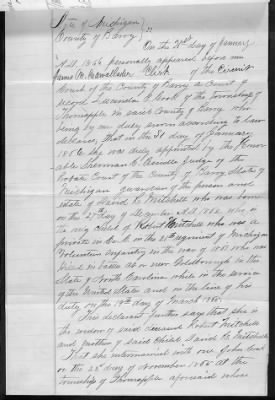 State of Michigan
County of Barry } ss
On the 31st day of January
A.D. 1866 personally appeared before me
James M. Clerk of the Circuit
Court of the County of Barry a Court of
record Lucinda Cook of the township of
Thornapple in said County of Barry who
being by me duly sworn according to law
declares, that on the 31 day of January
1866 she was duly appointed by the Honor
able Sherman C. Judge of the
Probate Court of the County of Barry State of
Michigan guardian of the person and
estate of David R. Mitchell who was born
on the 27th day of A.D. 1862, who is
the only child of Robert Mitchell who was a
private in Co. of the 28th regiment of Michigan
Volunteer infantry in the war of 1861 who was
killed in battle at or near Goldsborough in the
State of North Carolina while in the service
of the United States and in the line of his
duty on the 19th day of March 1865.
The declarant further says that she is
the widow of said Robert Mitchell
and mother of said child David R. Mitchell
That she intermarried with one John Cook
on the 22d day of November 1865 at the
township of Thornapple aforesaid whose